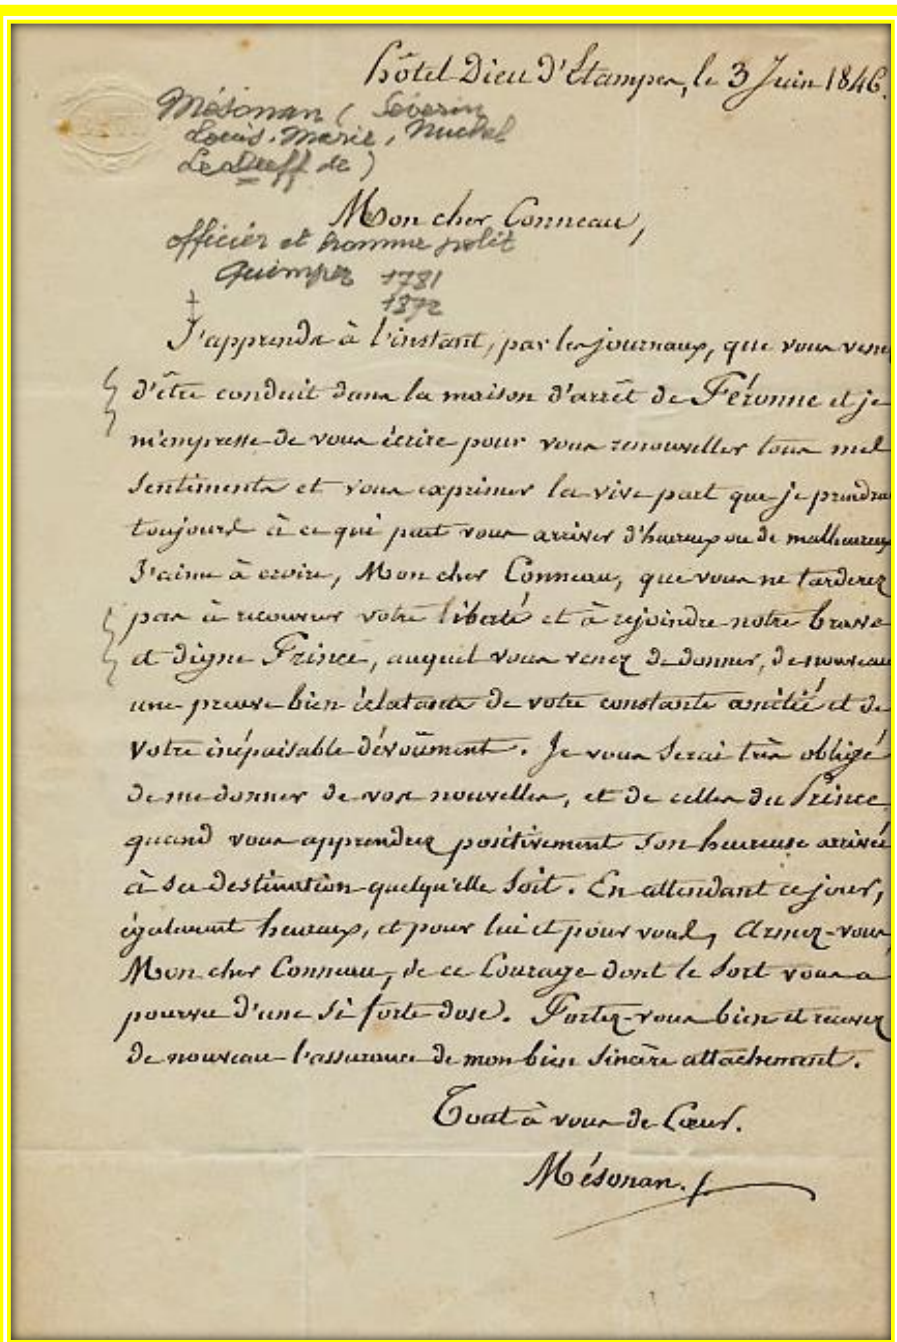 hôtel Dieu d'Étampes, le 3 Juin 1846.
Mésonan ( Séverin
Louis, Marie, Michel
Le Duff de )
Mon cher Conneau,
officier et homme polit
Quimper 1781
+ 1872
J'apprends à l'instant, par les journaux, que vous vene
d'être conduit dans la maison d'arrêt de Péronne et je
m'empresse de vous écrire pour vous renouveller tous mes
sentiments et vous exprimer la vive part que je prendrai
toujours à ce qui peut vous arriver d'heureux ou de malheureux
J'aime à croire, Mon cher Conneau, que vous ne tarderez
pas à recouvrer votre liberté et à rejoindre notre brave
et digne Prince, auquel vous venez de donner, de nouveau
une preuve bien éclatante de votre constante amitié et de
votre inépuisable dévoûment. Je vous serai très obligé
de me donner de vos nouvelles, et de celles du Prince
quand vous apprendrez positivement son heureuse arrivée
à sa destination quelqu'elle soit. En attendant ce jour,
également heureux, et pour lui et pour vous, Armez-vous
Mon cher Conneau, de ce Courage dont le sort vous a
pourvu d'une si forte dose. Portez-vous bien et recevez
de nouveau l'assurance de mon bien sincère attachement.
Tout à vous de Cœur.
Mésonan.